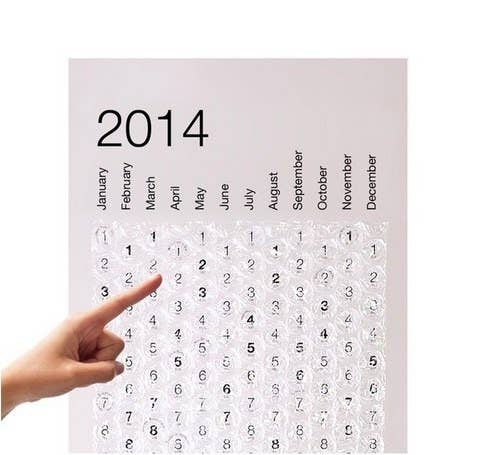 2014
January February March April May June July August September October November December
1 1 1 1 1 1 1 1 1 1 1 1
2 2 2 2 2 2 2 2 2 2 2 2
3 3 3 3 3 3 3 3 3 3 3
4 4 4 4 4 4 4 4 4 4
5 5 5 5 5 5 5 5 5 5
6 6 6 6 6 6 6 6 6 6 6
7 7 7 7 7 7 7 7 7 7 7 7
8 8 8 8 8 8 8 8 8 8 8 8